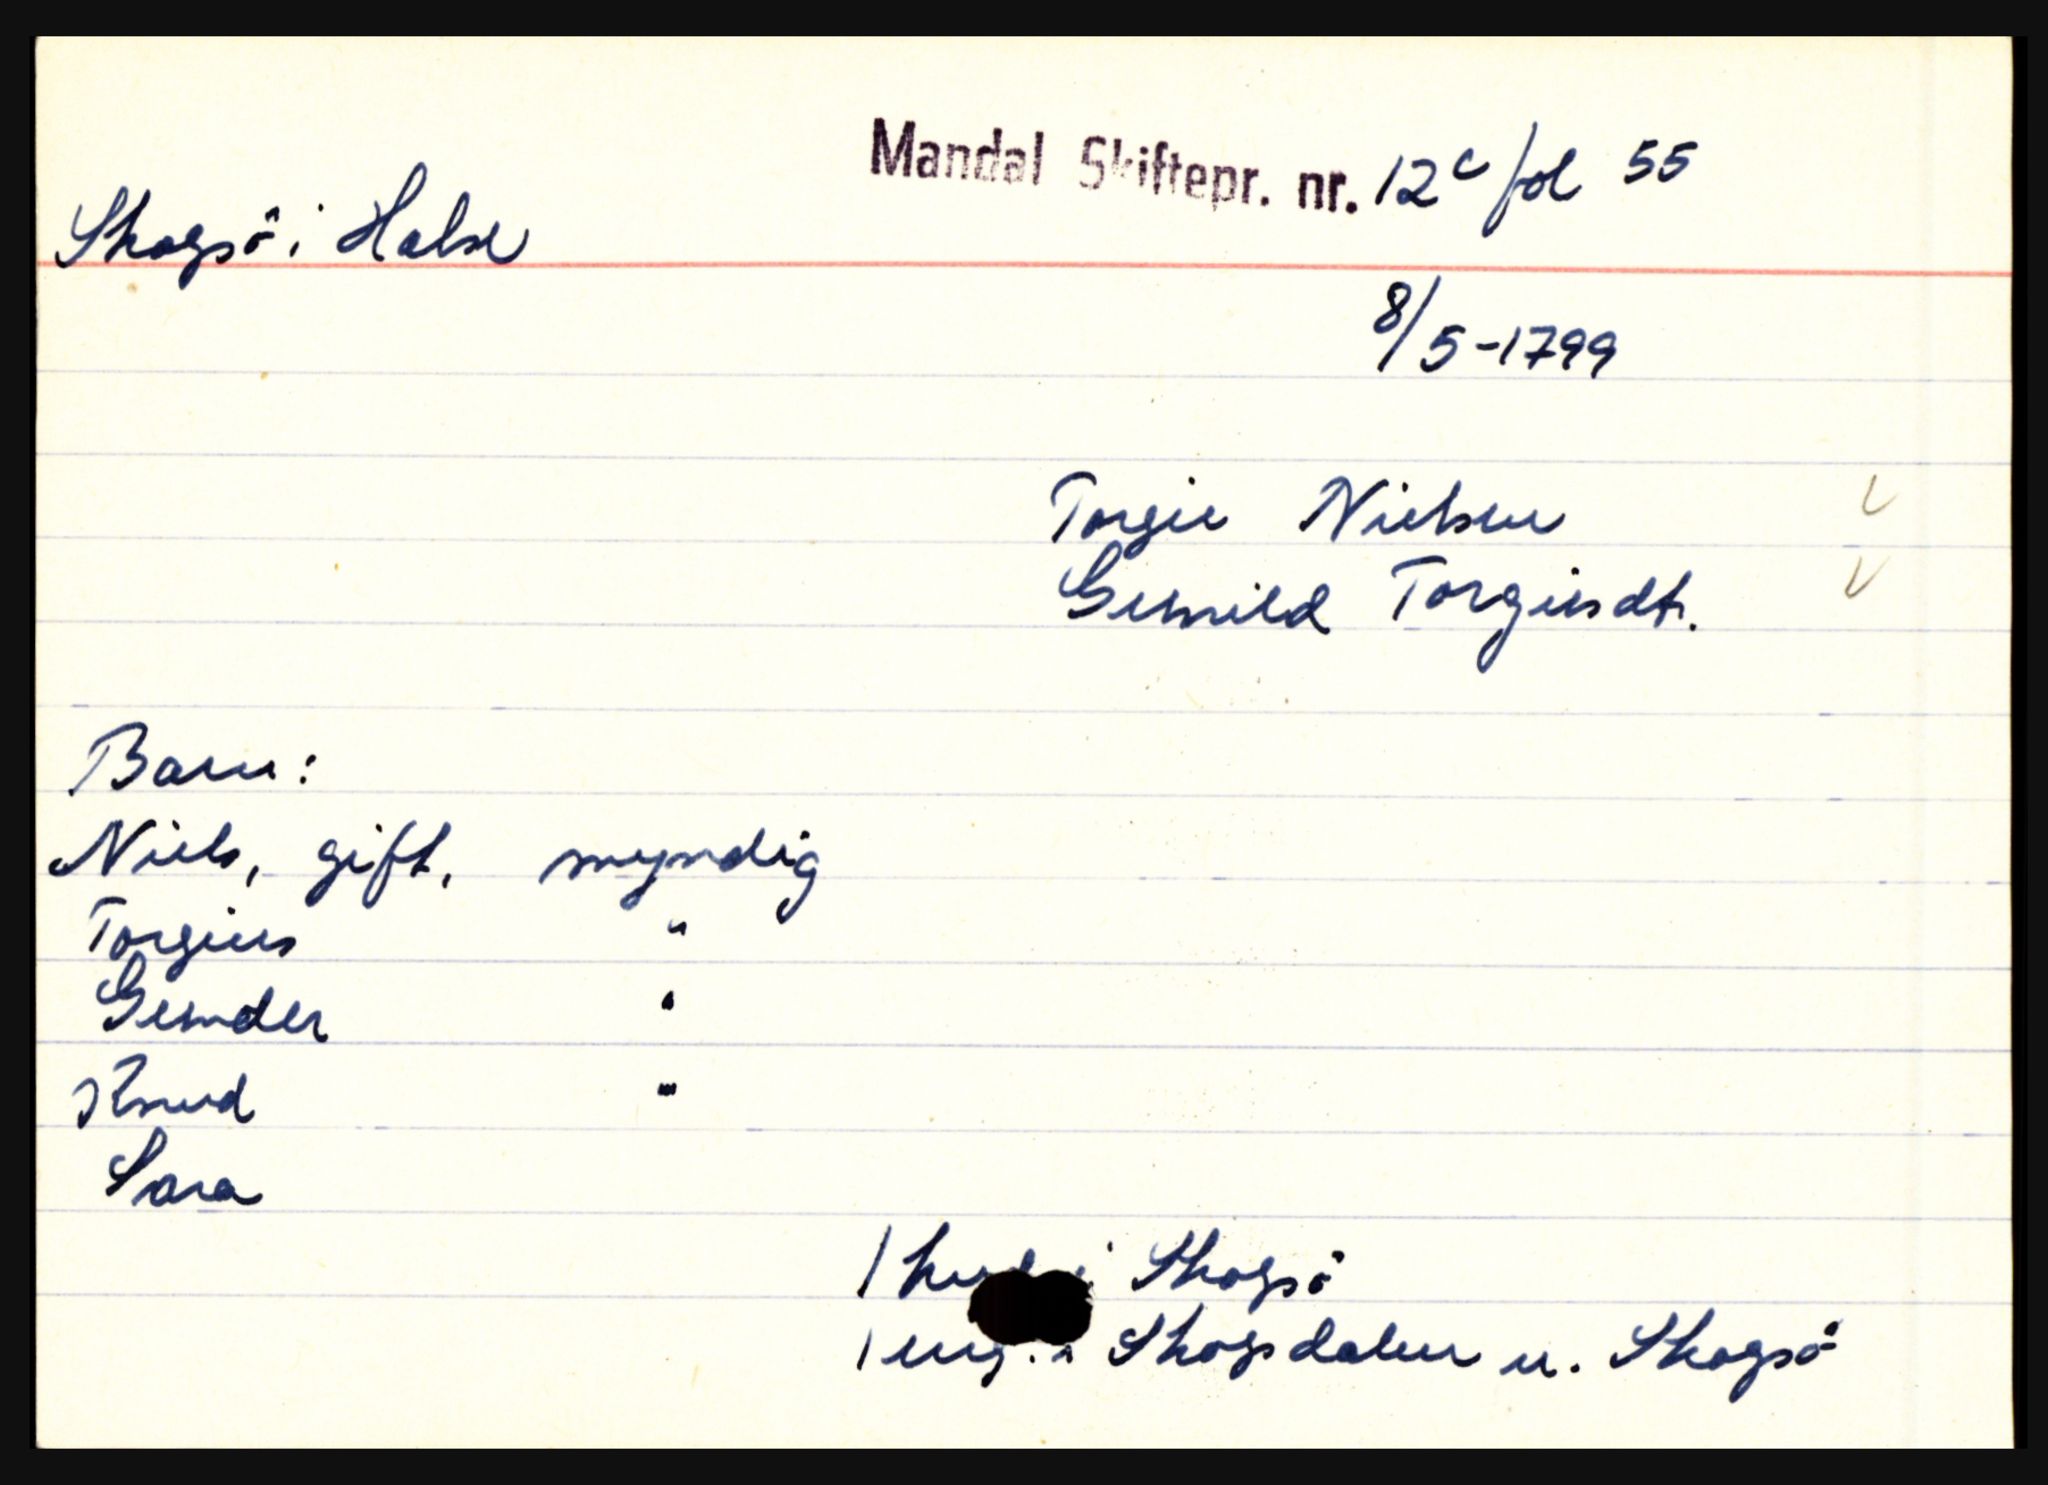 Mandal Skiftepr. nr. 12c fol 55
Skogsö i Halse
8/5-1799
Torgie Nielsen
Gunnild Torgiusdtr.
Barn:
Niels, gift, myndig
Torgius "
Gunder "
Knud "
Sara
1 hud i Skogsö
1 eng. i Skogsdalen u. Skogsö